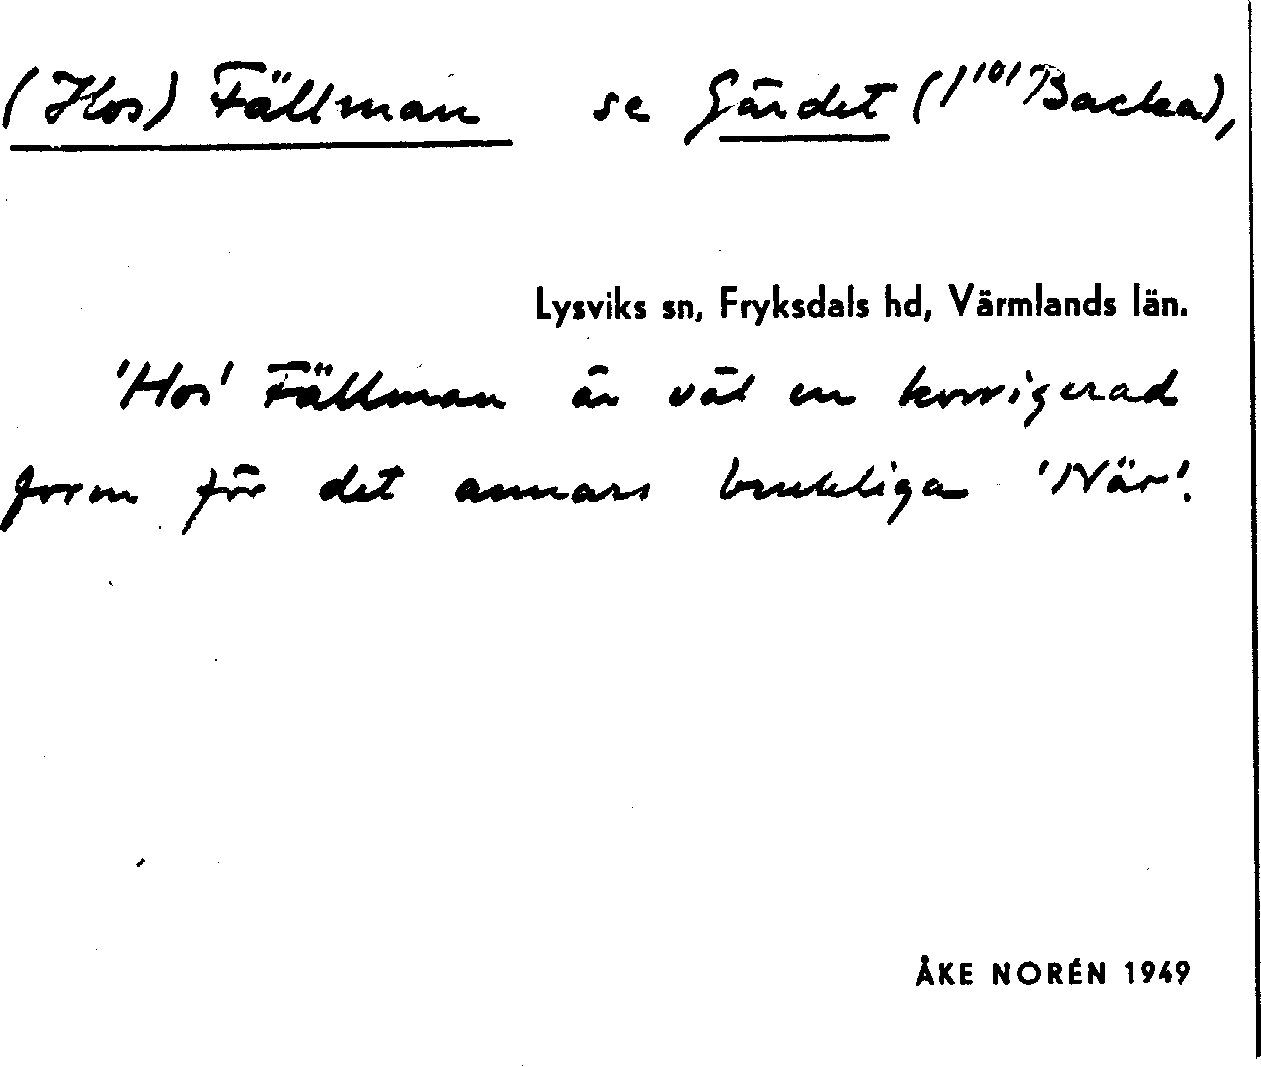 (Hos) Fällman se Gärdet (1¹⁰¹ Backa),
Lysviks sn, Fryksdals hd, Värmlands län.
'Hos' Fällman är väl en korrigerad
form för det annars brukliga 'När'.
ÅKE NORÉN 1949